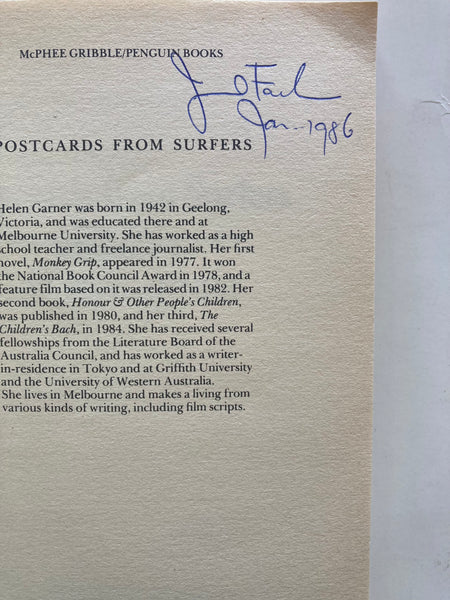 McPHEE GRIBBLE/PENGUIN BOOKS
Jan. 1986
POSTCARDS FROM SURFERS
Helen Garner was born in 1942 in Geelong,
Victoria, and was educated there and at
Melbourne University. She has worked as a high
school teacher and freelance journalist. Her first
novel, Monkey Grip, appeared in 1977. It won
the National Book Council Award in 1978, and a
feature film based on it was released in 1982. Her
second book, Honour & Other People's Children,
was published in 1980, and her third, The
Children's Bach, in 1984. She has received several
fellowships from the Literature Board of the
Australia Council, and has worked as a writer-
in-residence in Tokyo and at Griffith University
and the University of Western Australia.
She lives in Melbourne and makes a living from
various kinds of writing, including film scripts.